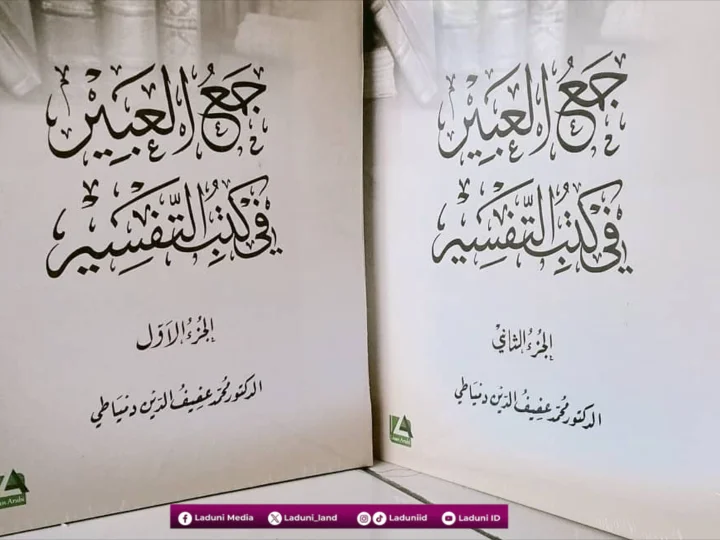 جَمْعُ الْعَبِيْرِ
فِي كُتُبِ التَّفْسِيْرِ
الجُزْءُ الأَوّل
الدكتور محمّد عفيفُ الدّين دمياطي
جَمْعُ الْعَبِيْرِ
فِي كُتُبِ التَّفْسِيْرِ
الجُزْءُ الثاني
الدكتور محمّد عفيفُ الدّين دمياطي
Laduni Media
Laduni_land
Laduniid
Laduni ID